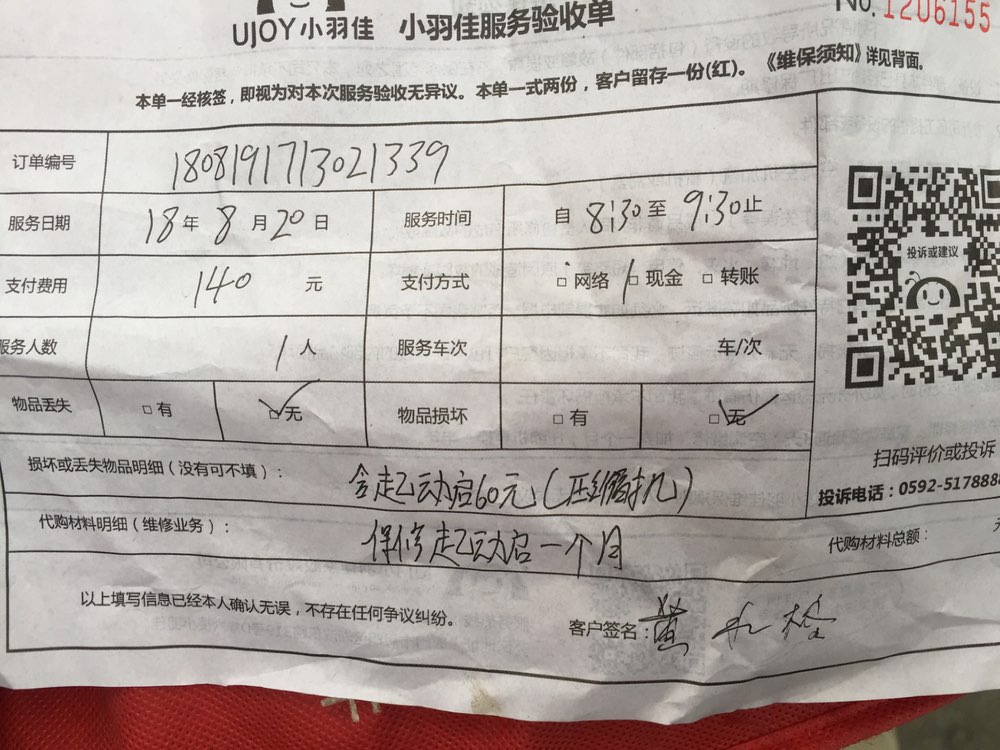 UJOY小羽佳 小羽佳服务验收单
No. 1206155
本单一经核签，即视为对本次服务验收无异议。本单一式两份，客户留存一份(红)。《维保须知》详见背面。
订单编号 180819171302１339
服务日期 18 年 8 月 20 日 服务时间 自 8:30 至 9:30 止
支付费用 140 元 支付方式 网络 现金 转账
服务人数 1 人 服务车次 车/次
物品丢失 有 无 物品损坏 有 无
投诉或建议
扫码评价或投诉
投诉电话：0592-5178888
损坏或丢失物品明细（没有可不填）： 含起动启60元（压缩机）
代购材料明细（维修业务）： 保修起动启一个月
代购材料总额：
以上填写信息已经本人确认无误，不存在任何争议纠纷。
客户签名：黄